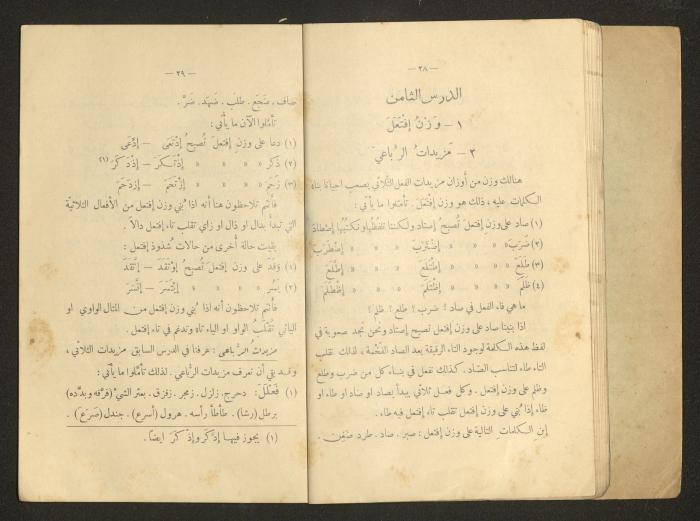 — ٢٨ —
الدرس الثامن
١ – وَزنُ إفتَعَلَ
٢ – مَزيداتُ الرُّباعيّ
هنالك وزن من أوزان مزيدات الفعل الثلاثي يصعب احيانا بناء
الكلمات عليه ، ذلك هو وزن إفتَعَلَ . تأملوا ما يأتي :
(١) صاد على وزن إفتعل تُصبحُ إصتاد ولكننا نلفظُها ونكتبُها إصطادَ
(٢) ضَرَبَ » » » » إضتَرَبَ » » » إضطَرَبَ
(٣) طَلَعَ » » » » إطتَلَعَ » » » إطَّلَعَ
(٤) ظَلَمَ » » » » إظتَلَمَ » » » إظَّلَمَ
ما هي فاء الفعل في صاد ؟ ضرب ؟ طلع ؟ ظلم ؟
اذا بنينا صاد على وزن إفتعل تصبح إصتاد ونحن نجد صعوبة في
لفظ هذه الكلمة لوجود التاء الرقيقة بعد الصاد الفَخْمة ، لذلك نقلب
التاء طاء لتناسب الصاد . كذلك نفعل في بناء كل من ضرب وطلع
وظلم على وزن إفتعل . وكل فعل ثلاثي يبدأ بصاد او ضاد او طاء او
ظاء إذا بُني على وزن إفتعل تقلب تاء إفتعل فيه طاء .
إبنِ الكلمات التالية على وزن إفتعل : صبر . صاد . طرد . ضَغِن .
— ٢٩ —
صاف . ضجع . طلب . ضهد . ضرَّ .
تأمَّلوا الآن ما يأتي :
(١) دعا على وزن إفتعل تُصبحُ إدْتَعَى — إدَّعَى
(٢) ذكر » » » » إذْتَكَرَ — إذْدَكَرَ (١)
(٣) زَحَمَ » » » » إزْتَحَمَ — إزدَحَمَ
فأنتم تلاحظون هنا أنه اذا بُني وزن إفتعل من الأفعال الثلاثيَّة
التي تبدأ بدال او ذال او زاي تقلب تاء إفتعل دالاً .
بقيت حالة أُخرى من حالات شذوذ إفتعل :
(١) وَقَدَ على وزن إفتعل تُصبحُ إوْتَقَدَ — إتَّقَدَ
(٢) يَسَر » » » » إيْتَسَرَ — إتَّسَرَ
فأنتم تلاحظون أنه اذا بُني وزن إفتعل من المثال الواوي او
اليائي تُقْلَبُ الواو او الياء تاء وتدغم في تاء إفتعل .
مزيداتُ الرُّباعي : عرفنا في الدرس السابق مزيدات الثلاثي ،
وقد بقي أن نعرف مزيدات الرُّباعي . لذلك تأمَّلوا ما يأتي :
(١) فَعْلَلَ: دحرج . زلزل . زمجر . زقزق . بعثر الشيَْ (فرَّقه وبدَّده)
برطل (رشا) . طأطأ رأسه . هرول (أسرع) . جندل (صَرَعَ) .
(١) يجوز فيها إذَّكَر وإدَّكَرَ ايضاً .